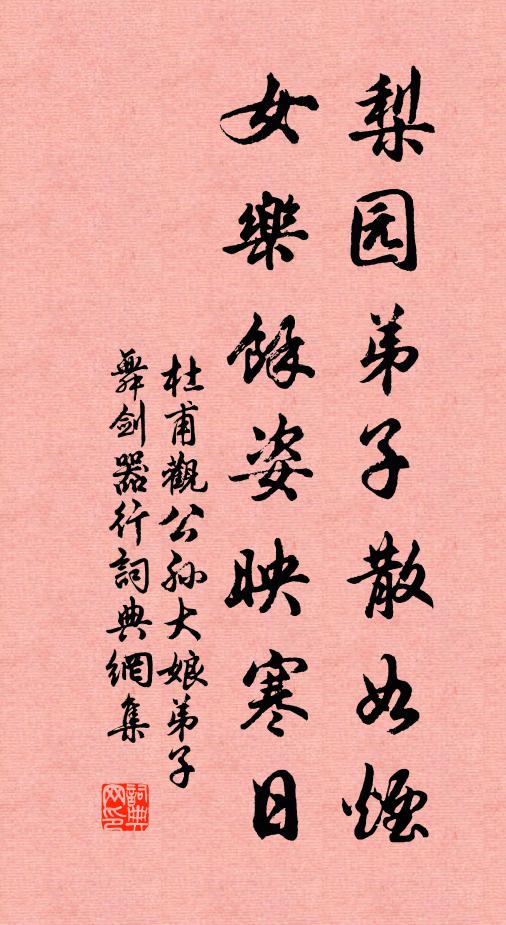 梨园弟子散如煙
女樂餘姿映寒日
杜甫觀公孙大娘弟子
舞剑器行詞典網集
詞典网印